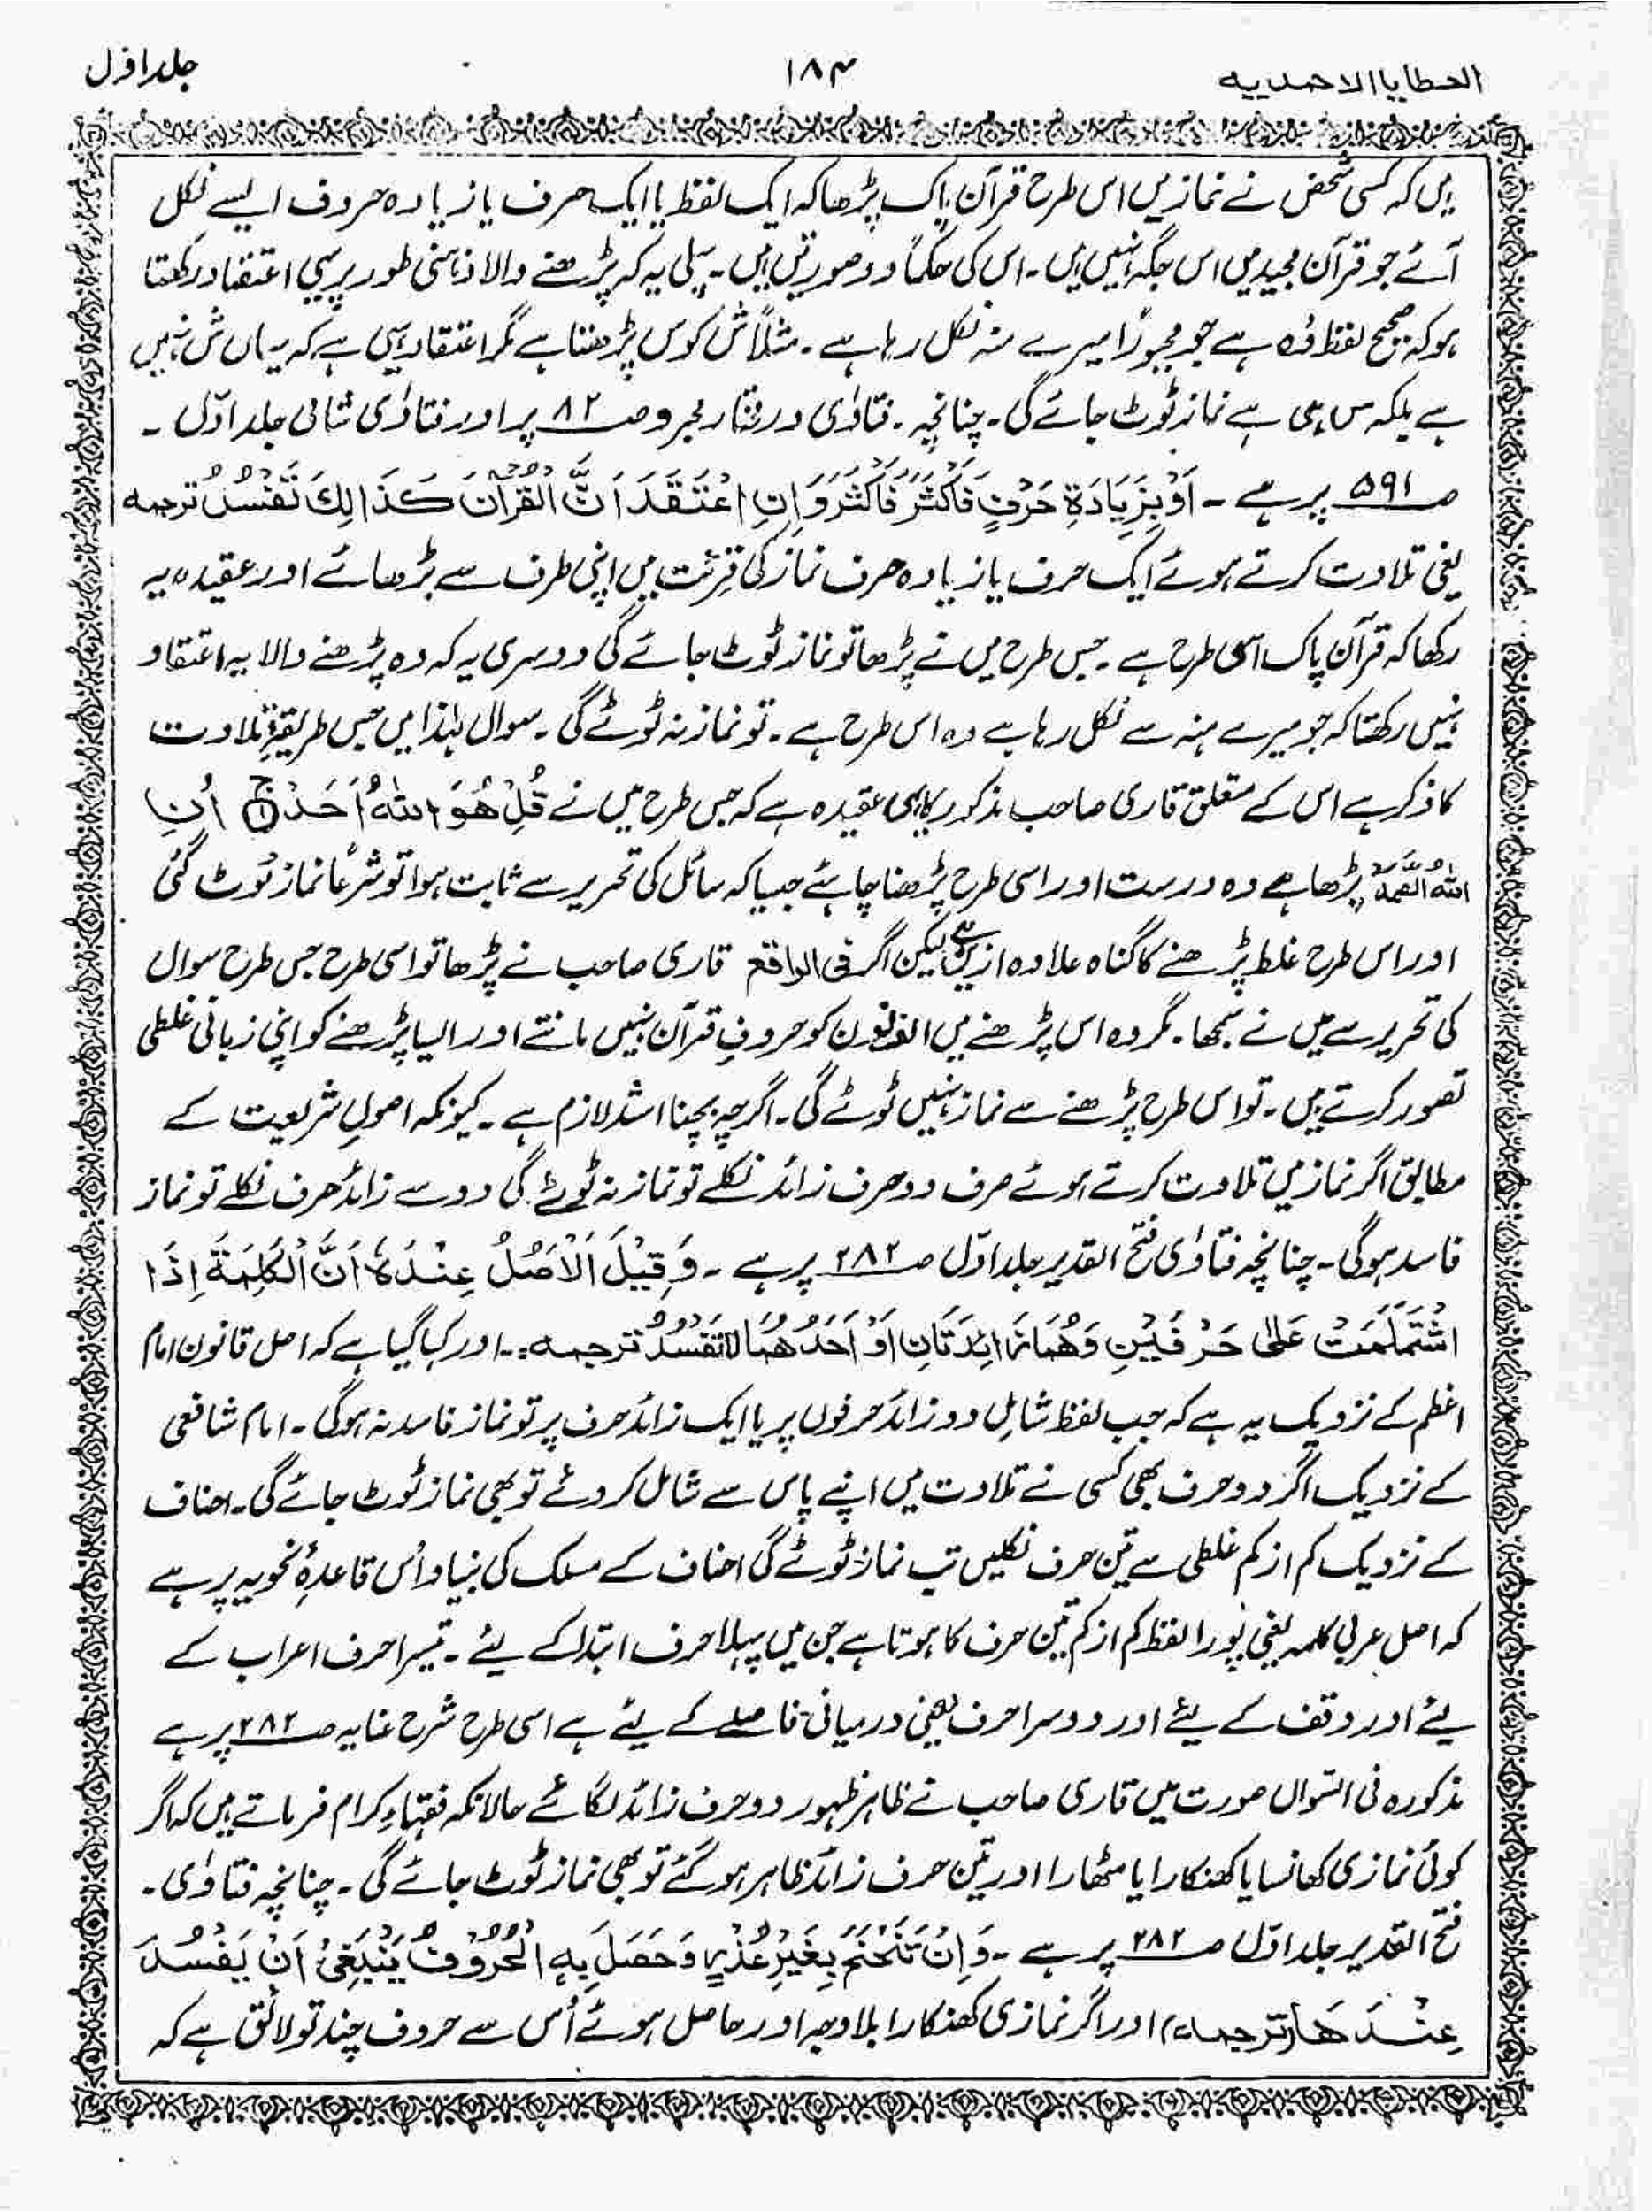 العطایا الاحمدیہ ۱۸۴ جلد اوّل
ہیں کہ کسی شخص نے نماز میں اس طرح قرآن پاک پڑھا کہ ایک لفظ یا ایک حرف یا زیادہ حروف ایسے نکل
آئے جو قرآن مجید میں اس جگہ نہیں ہیں۔ اس کی حکماً دو صورتیں ہیں۔ پہلی یہ کہ پڑھنے والا ذہنی طور پر یہی اعتقاد رکھتا
ہو کہ صحیح لفظ وُہ ہے جو مجبورًا میرے منہ نکل رہا ہے۔ مثلاً ش کو س پڑھتا ہے مگر اعتقاد یہی ہے کہ یہاں ش نہیں
ہے بلکہ س ہی ہے نماز ٹوٹ جائے گی۔ چنانچہ۔ فتاوٰی در مختار مجرو صـ ۸۲ پر اور فتاوٰی شامی جلد اوّل ۔
صـ ۵۹۱ پر ہے ۔ اَوْ بِزِیَادَۃِ حَرْفٍ فَاَکْثَرَ فَاَکْثَرُ وَ اِنِ اعْتَقَدَ اَنَّ الْقُرْآنَ کَذَالِكَ تَفْسُدُ ترجمہ
یعنی تلاوت کرتے ہوئے ایک حرف یا زیادہ حرف نماز کی قرئت میں اپنی طرف سے بڑھائے اور عقیدہ یہ
رکھا کہ قرآن پاک اسی طرح ہے۔ جس طرح میں نے پڑھا تو نماز ٹوٹ جائے گی دوسری یہ کہ وہ پڑھنے والا یہ اعتقاد
نہیں رکھتا کہ جو میرے منہ سے نکل رہا ہے وہ اس طرح ہے۔ تو نماز نہ ٹوٹے گی۔ سوال ہٰذا میں جس طریقۂ تلاوت
کا ذکر ہے اس کے متعلق قاری صاحب مذکور کا یہی عقیدہ ہے کہ جس طرح میں نے قُلْ ھُوَ اللّٰہُ اَحَدٌ ۚ ۱ اُنِ
اللّٰہُ الصَّمَدُ پڑھا ہے وہ درست اور اسی طرح پڑھنا چاہئے جیسا کہ سائل کی تحریر سے ثابت ہوا تو شرعًا نماز ٹوٹ گئی
اور اس طرح غلط پڑھنے کا گناہ علاوہ ازیں ہے لیکن اگر فی الواقع قاری صاحب نے پڑھا تو اسی طرح جس طرح سوال
کی تحریر سے میں نے سمجھا۔ مگر وہ اس پڑھنے میں الف نون کو حروفِ قرآن نہیں مانتے اور الیا پڑھنے کو اپنی زبانی غلطی
تصور کرتے ہیں۔ تو اس طرح پڑھنے سے نماز نہیں ٹوٹے گی۔ اگرچہ بچنا اشد لازم ہے۔ کیونکہ اصولِ شریعت کے
مطابق اگر نماز میں تلاوت کرتے ہوئے صرف دو حرف زائد نکلے تو نماز نہ ٹوٹے گی دو سے زائد حرف نکلے تو نماز
فاسد ہوگی۔ چنانچہ فتاوٰی فتح القدیر جلد اوّل صـ ۲۸۲ پر ہے ۔ وَ قِیْلَ اَلْاَصْلُ عِنْدَہٗ اَنَّ الْکَلِمَۃَ اِذَا
اشْتَمَلَمَتْ عَلیٰ حَرْفَیْنِ وَھُمَا زَائِدَتَانِ اَوْ اَحَدُھُمَا لَا تَفْسُدُ ترجمہ:۔ اور کہا گیا ہے کہ اصل قانون امام
اعظم کے نزدیک یہ ہے کہ جب لفظ شامل دو زائد حرفوں پر یا ایک زائد حرف پر تو نماز فاسد نہ ہوگی۔ امام شافعی
کے نزدیک اگر دو حرف بھی کسی نے تلاوت میں اپنے پاس سے شامل کر دئے تو بھی نماز ٹوٹ جائے گی۔ احناف
کے نزدیک کم از کم غلطی سے تین حرف نکلیں تب نماز ٹوٹے گی احناف کے مسلک کی بنیاد اُس قاعدۂ نحویہ پر ہے
کہ اصل عربی کلمہ یعنی پورا لفظ کم از کم تین حرف کا ہوتا ہے جن میں پہلا حرف ابتدا کے لیئے۔ تیسرا حرف اعراب کے
لیئے اور وقف کے لیئے اور دوسرا حرف یعنی درمیانی فاصلے کے لیئے ہے اسی طرح شرح عنایہ صـ ۲۸۲ پر ہے
مذکورہ فی السّوال صورت میں قاری صاحب نے ظاہر ظہور دو حرف زائد لگائے حالانکہ فقہاءِ کرام فرماتے ہیں کہ اگر
کوئی نمازی کھانسا یا کھنکارا یا مٹھارا اور تین حرف زائد ظاہر ہو گئے تو بھی نماز ٹوٹ جائے گی۔ چنانچہ فتاوٰی۔
فتح القدیر جلد اوّل صـ ۲۸۲ پر ہے ۔ وَ اِنْ تَنَحْنَحَ بِغَیْرِ عُذْرٍ وَ حَصَلَ بِہٖ الْحُرُوْفُ یَنْبَغِیْ اَنْ یَفْسُدَ
عِنْدَھَا (ترجمہ) اور اگر نمازی کھنکارا بلا وجہ اور حاصل ہوئے اُس سے حروف چند تو لائق ہے کہ